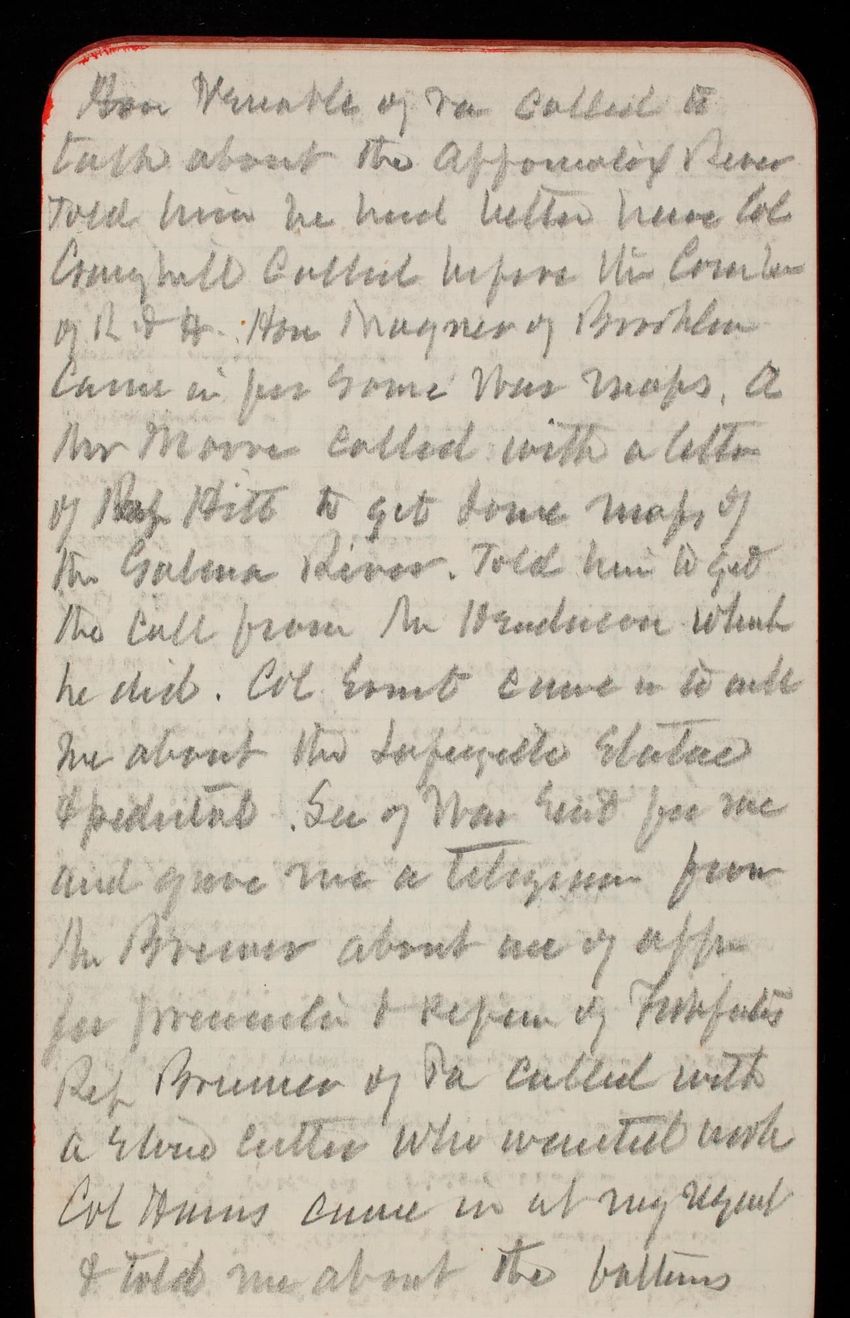 Hon Venable of Va called to
talk about the Appomatox River
Told him he had better have Col
Craighill called before the Com
of R & H. Hon Magner of Brooklin
came in for some War maps. A
Mr Moore called with a letter
of Rep Hitt to get some maps of
the Galena River. Told him to get
the call from Mr Henderson which
he did. Col Ernst came in to ask
me about the Lafayette Statue
& pedestal. Sec of War sent for me
and gave me a telegram from
Mr about use of appn
for preservation & repair of Fortifcatis
Rep Brumer of Pa called with
a stone cutter who wanted work
Col Hains came in at my request
& told me about the